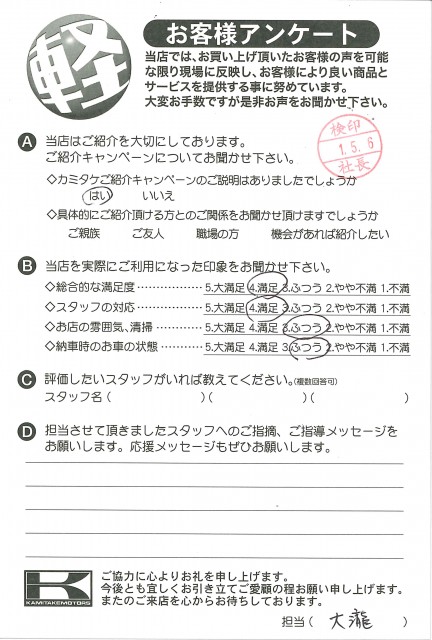 軽
お客様アンケート
当店では、お買い上げ頂いたお客様の声を可能
な限り現場に反映し、お客様により良い商品と
サービスを提供する事に努めています。
大変お手数ですが是非お声をお聞かせ下さい。
検印
1.5.6
社長
A 当店はご紹介を大切にしております。
ご紹介キャンペーンについてお聞かせ下さい。
◇カミタケご紹介キャンペーンのご説明はありましたでしょうか
はい いいえ
◇具体的にご紹介頂ける方とのご関係をお聞かせ頂けますでしょうか
ご親族 ご友人 職場の方 機会があれば紹介したい
B 当店を実際にご利用になった印象をお聞かせ下さい。
◇総合的な満足度 ……………… 5.大満足 4.満足 3.ふつう 2.やや不満 1.不満
◇スタッフの対応 ……………… 5.大満足 4.満足 3.ふつう 2.やや不満 1.不満
◇お店の雰囲気、清掃 ………… 5.大満足 4.満足 3.ふつう 2.やや不満 1.不満
◇納車時のお車の状態 ………… 5.大満足 4.満足 3.ふつう 2.やや不満 1.不満
C 評価したいスタッフがいれば教えてください。(複数回答可)
スタッフ名( )( )( )
D 担当させて頂きましたスタッフへのご指摘、ご指導メッセージを
お願いします。応援メッセージもぜひお願いします。
K
KAMITAKEMOTORS
ご協力に心よりお礼を申し上げます。
今後とも宜しくお引き立てご愛顧の程お願い申し上げます。
またのご来店を心からお待ちしております。
担当( 大瀧 )